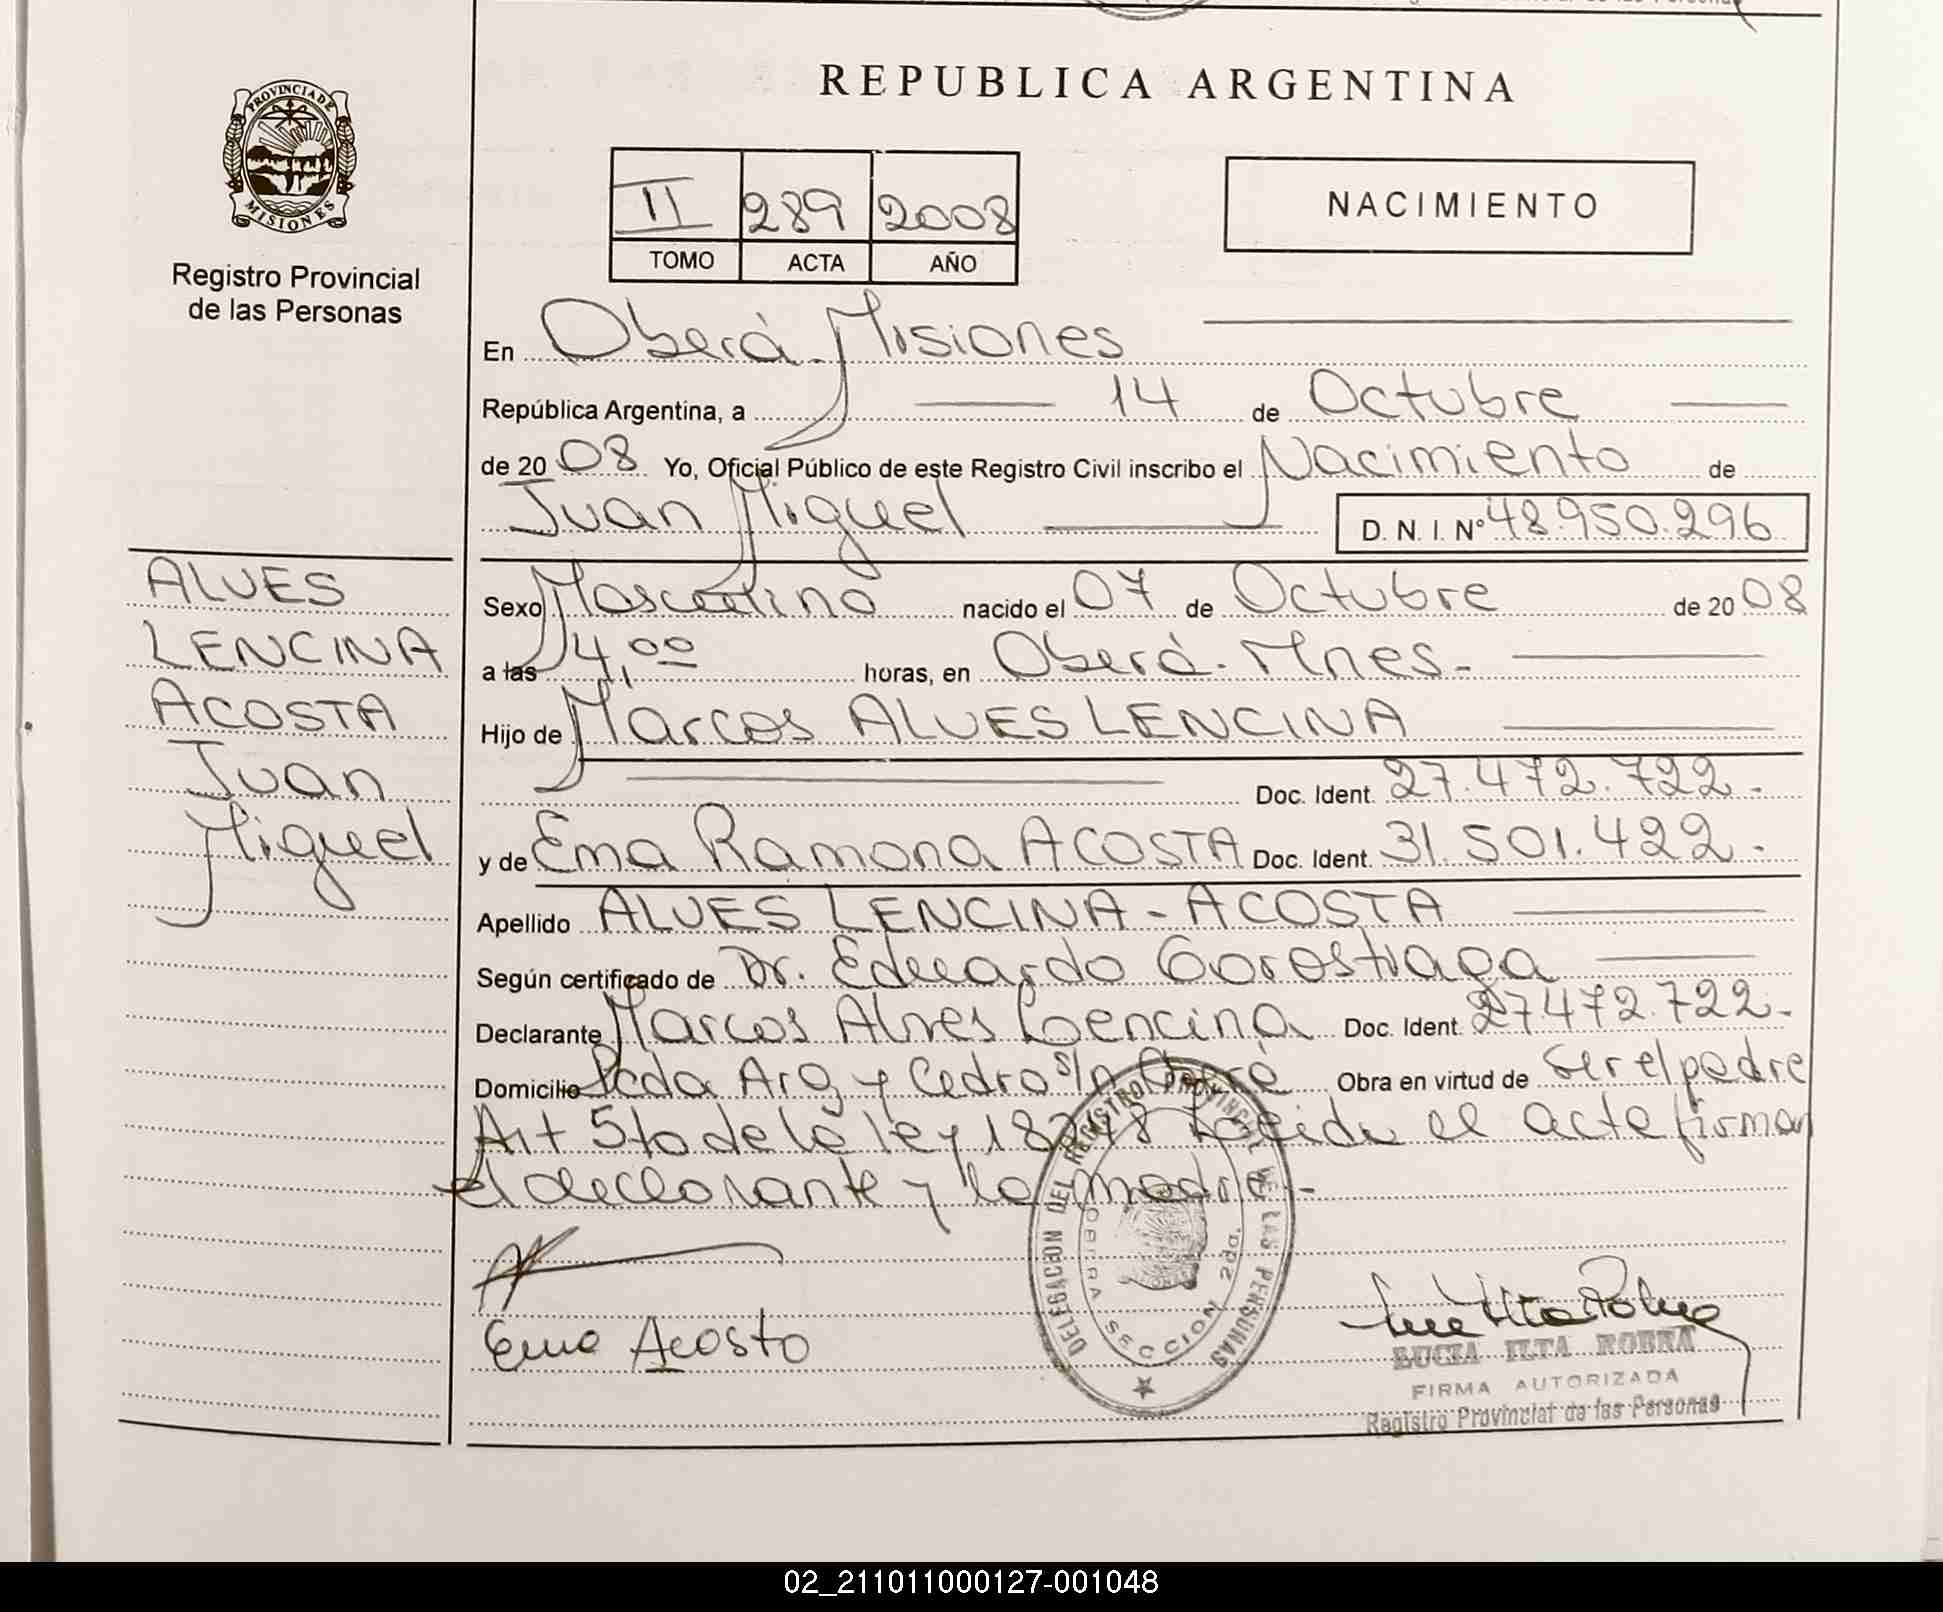 REPUBLICA ARGENTINA
PROVINCIA DE
MISIONES
Registro Provincial
de las Personas
II 289 2008
TOMO ACTA AÑO
NACIMIENTO
En Oberá Misiones
República Argentina, a 14 de Octubre
de 2008 Yo, Oficial Público de este Registro Civil inscribo el Nacimiento de
Juan Miguel D. N. I. Nº 48.950.296
ALVES
LENCINA
ACOSTA
Juan
Miguel
Sexo Masculino nacido el 07 de Octubre de 2008
a las 14,00 horas, en Oberá. Mnes.
Hijo de Marcos ALVES LENCINA
Doc. Ident. 27.472.722.
y de Ema Ramona ACOSTA Doc. Ident. 31.501.422.
Apellido ALVES LENCINA - ACOSTA
Según certificado de Dr. Eduardo Gorostiaga
Declarante Marcos Alves Lencina Doc. Ident. 27472.722.
Domicilio Pcda Arg y Cedro s/n Oberá Obra en virtud de ser el padre
Art 5to de la ley 18248 Leida el acta firman
el declarante y la madre.-
DELEGACION DEL REGISTRO PROVINCIAL DE LAS PERSONAS
SECCION 2da.
Ema Acosta
LUCIA ILTA
FIRMA AUTORIZADA
Registro Provincial de las Personas
02_211011000127-001048